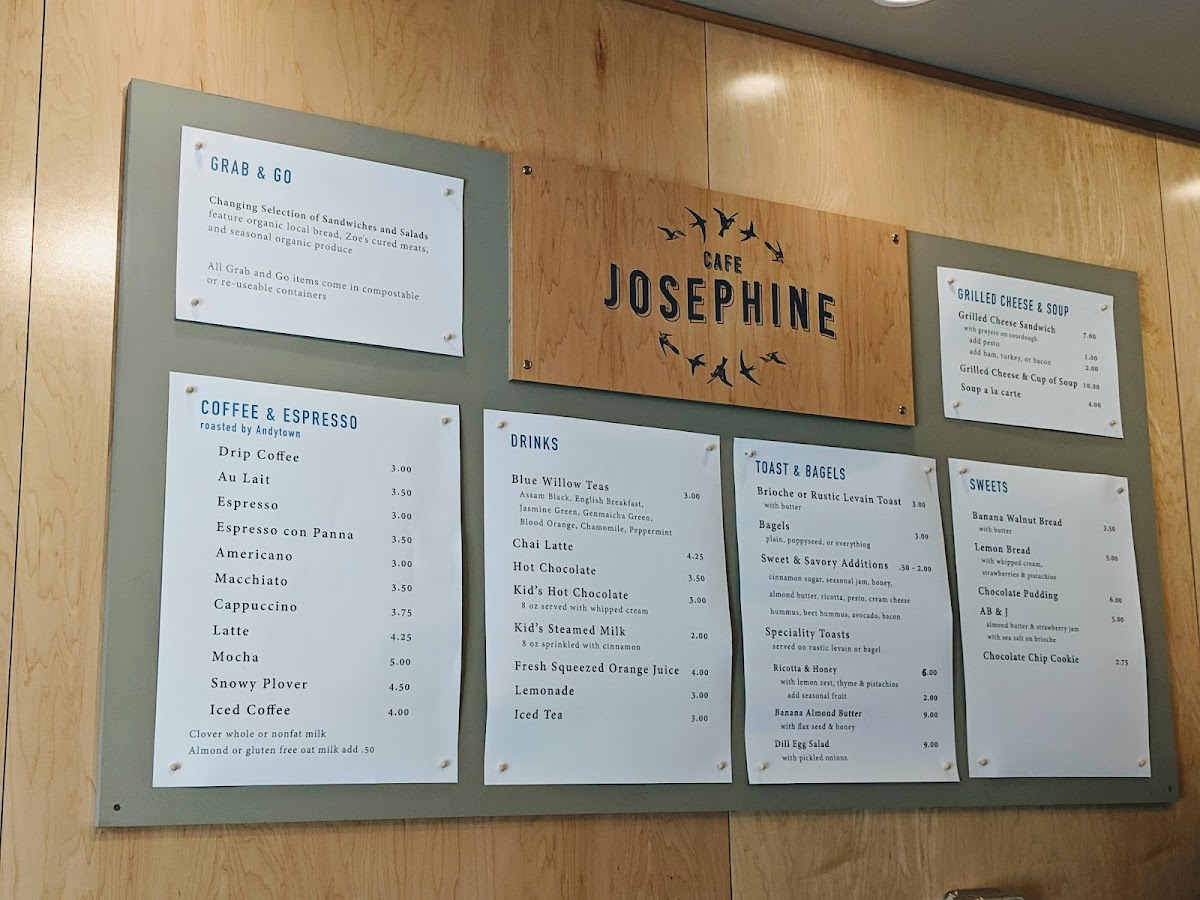 GRAB & GO
Changing Selection of Sandwiches and Salads
feature organic local bread, Zoe's cured meats,
and seasonal organic produce
All Grab and Go items come in compostable
or re-useable containers
CAFE
JOSEPHINE
GRILLED CHEESE & SOUP
Grilled Cheese Sandwich 7.00
with gruyere on sourdough
add pesto 1.00
add ham, turkey, or bacon 2.00
Grilled Cheese & Cup of Soup 10.00
Soup a la carte 4.00
COFFEE & ESPRESSO
roasted by Andytown
Drip Coffee 3.00
Au Lait 3.50
Espresso 3.00
Espresso con Panna 3.50
Americano 3.00
Macchiato 3.50
Cappuccino 3.75
Latte 4.25
Mocha 5.00
Snowy Plover 4.50
Iced Coffee 4.00
Clover whole or nonfat milk
Almond or gluten free oat milk add .50
DRINKS
Blue Willow Teas 3.00
Assam Black, English Breakfast,
Jasmine Green, Genmaicha Green,
Blood Orange, Chamomile, Peppermint
Chai Latte 4.25
Hot Chocolate 3.50
Kid's Hot Chocolate 3.00
8 oz served with whipped cream
Kid's Steamed Milk 2.00
8 oz sprinkled with cinnamon
Fresh Squeezed Orange Juice 4.00
Lemonade 3.00
Iced Tea 3.00
TOAST & BAGELS
Brioche or Rustic Levain Toast 3.00
with butter
Bagels 3.00
plain, poppyseed, or everything
Sweet & Savory Additions .50 - 2.00
cinnamon sugar, seasonal jam, honey,
almond butter, ricotta, pesto, cream cheese
hummus, beet hummus, avocado, bacon
Speciality Toasts
served on rustic levain or bagel
Ricotta & Honey 6.00
with lemon zest, thyme & pistachios
add seasonal fruit 2.00
Banana Almond Butter 9.00
with flax seed & honey
Dill Egg Salad 9.00
with pickled onions
SWEETS
Banana Walnut Bread 3.50
with butter
Lemon Bread 5.00
with whipped cream,
strawberries & pistachios
Chocolate Pudding 6.00
AB & J 5.00
almond butter & strawberry jam
with sea salt on brioche
Chocolate Chip Cookie 2.75